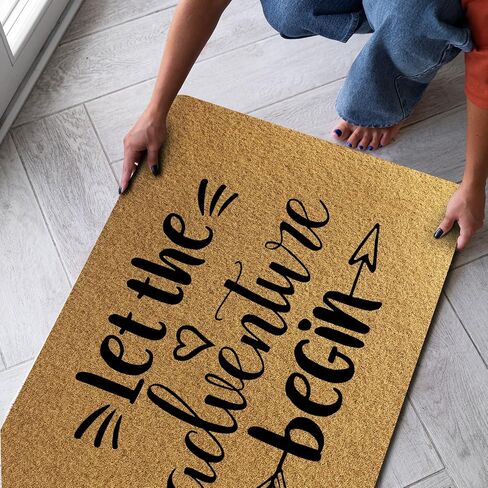 Let the
adventure
begin